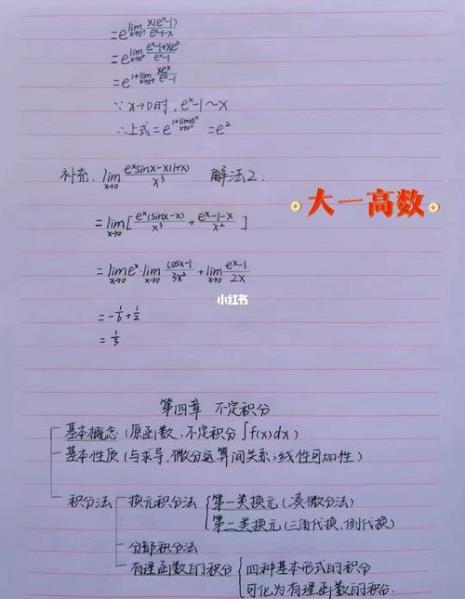 =e^{lim_{x→0⁺} x(e^x-1)/(e^x-1-x)}
=e^{lim_{x→0⁺} (e^x-1+xe^x)/(e^x-1)}
=e^{1+lim_{x→0⁺} xe^x/(e^x-1)}
∵ x→0时, e^x-1~x
∴上式=e^{1+lim_{x→0⁺}e^x}=e²
补充. lim_{x→0} (e^x sinx-x(1+x))/x³ 解法2:
大一高数
=lim_{x→0}[e^x(sinx-x)/x³ + (e^x-1-x)/x²]
=lim_{x→0}e^x·lim_{x→0} (cosx-1)/3x² + lim_{x→0} (e^x-1)/2x
小红书
=-1/6+1/2
=1/3
第四章 不定积分
基本概念(原函数、不定积分∫f(x)dx)
基本性质(与求导、微分运算间关系;线性可加性)
积分法 换元积分法 第一类换元(凑微分法)
第二类换元(三角代换、倒代换)
分部积分法
有理函数的积分 四种基本形式的积分
可化为有理函数的积分.